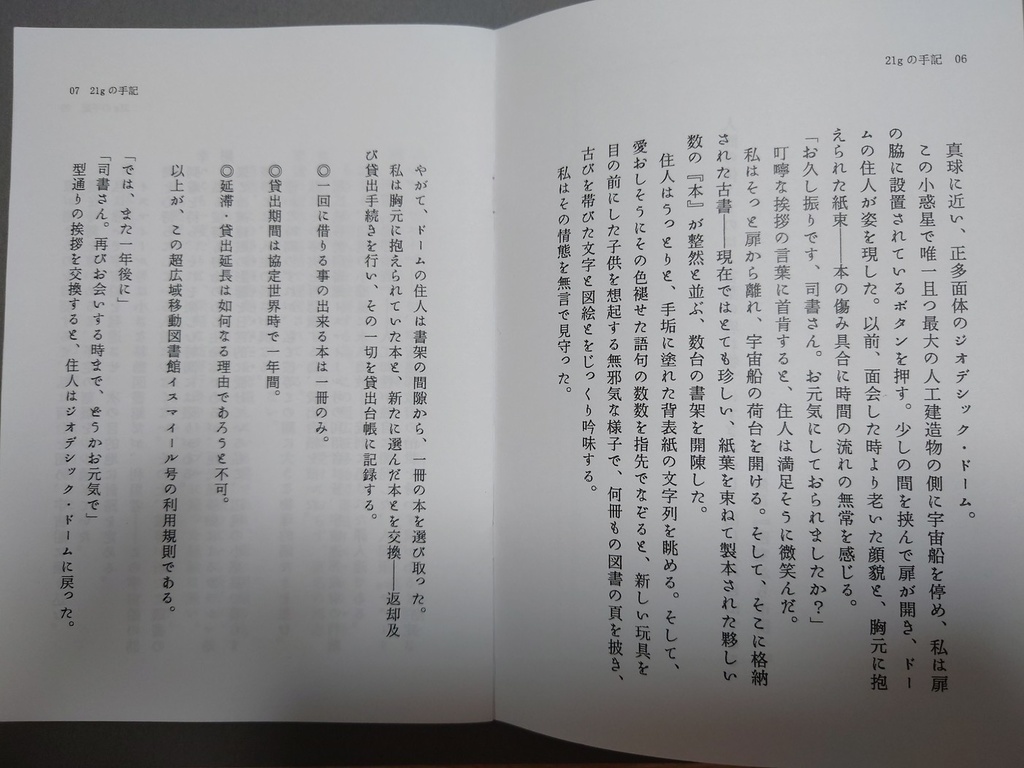 21gの手記　06
真球に近い、正多面体のジオデシック・ドーム。
この小惑星で唯一且つ最大の人工建造物の側に宇宙船を停め、私は扉
の脇に設置されているボタンを押す。少しの間を挟んで扉が開き、ドー
ムの住人が姿を現した。以前、面会した時より老いた顔貌と、胸元に抱
えられた紙束――本の傷み具合に時間の流れの無常を感じる。
「お久し振りです、司書さん。お元気にしておられましたか？」
叮嚀な挨拶の言葉に首肯すると、住人は満足そうに微笑んだ。
私はそっと扉から離れ、宇宙船の荷台を開ける。そして、そこに格納
された古書――現在ではとても珍しい、紙葉を束ねて製本された夥しい
数の『本』が整然と並ぶ、数台の書架を開陳した。
住人はうっとりと、手垢に塗れた背表紙の文字列を眺める。そして、
愛おしそうにその色褪せた語句の数数を指先でなぞると、新しい玩具を
目の前にした子供を想起する無邪気な様子で、何冊もの図書の頁を披き、
古びを帯びた文字と図絵とをじっくり吟味する。
私はその情態を無言で見守った。
07　21gの手記
やがて、ドームの住人は書架の間隙から、一冊の本を選び取った。
私は胸元に抱えられていた本と、新たに選んだ本とを交換――返却及
び貸出手続きを行い、その一切を貸出台帳に記録する。
◎一回に借りる事の出来る本は一冊のみ。
◎貸出期間は協定世界時で一年間。
◎延滞・貸出延長は如何なる理由であろうと不可。
以上が、この超広域移動図書館イスマイール号の利用規則である。
「では、また一年後に」
「司書さん。再びお会いする時まで、どうかお元気で」
型通りの挨拶を交換すると、住人はジオデシック・ドームに戻った。